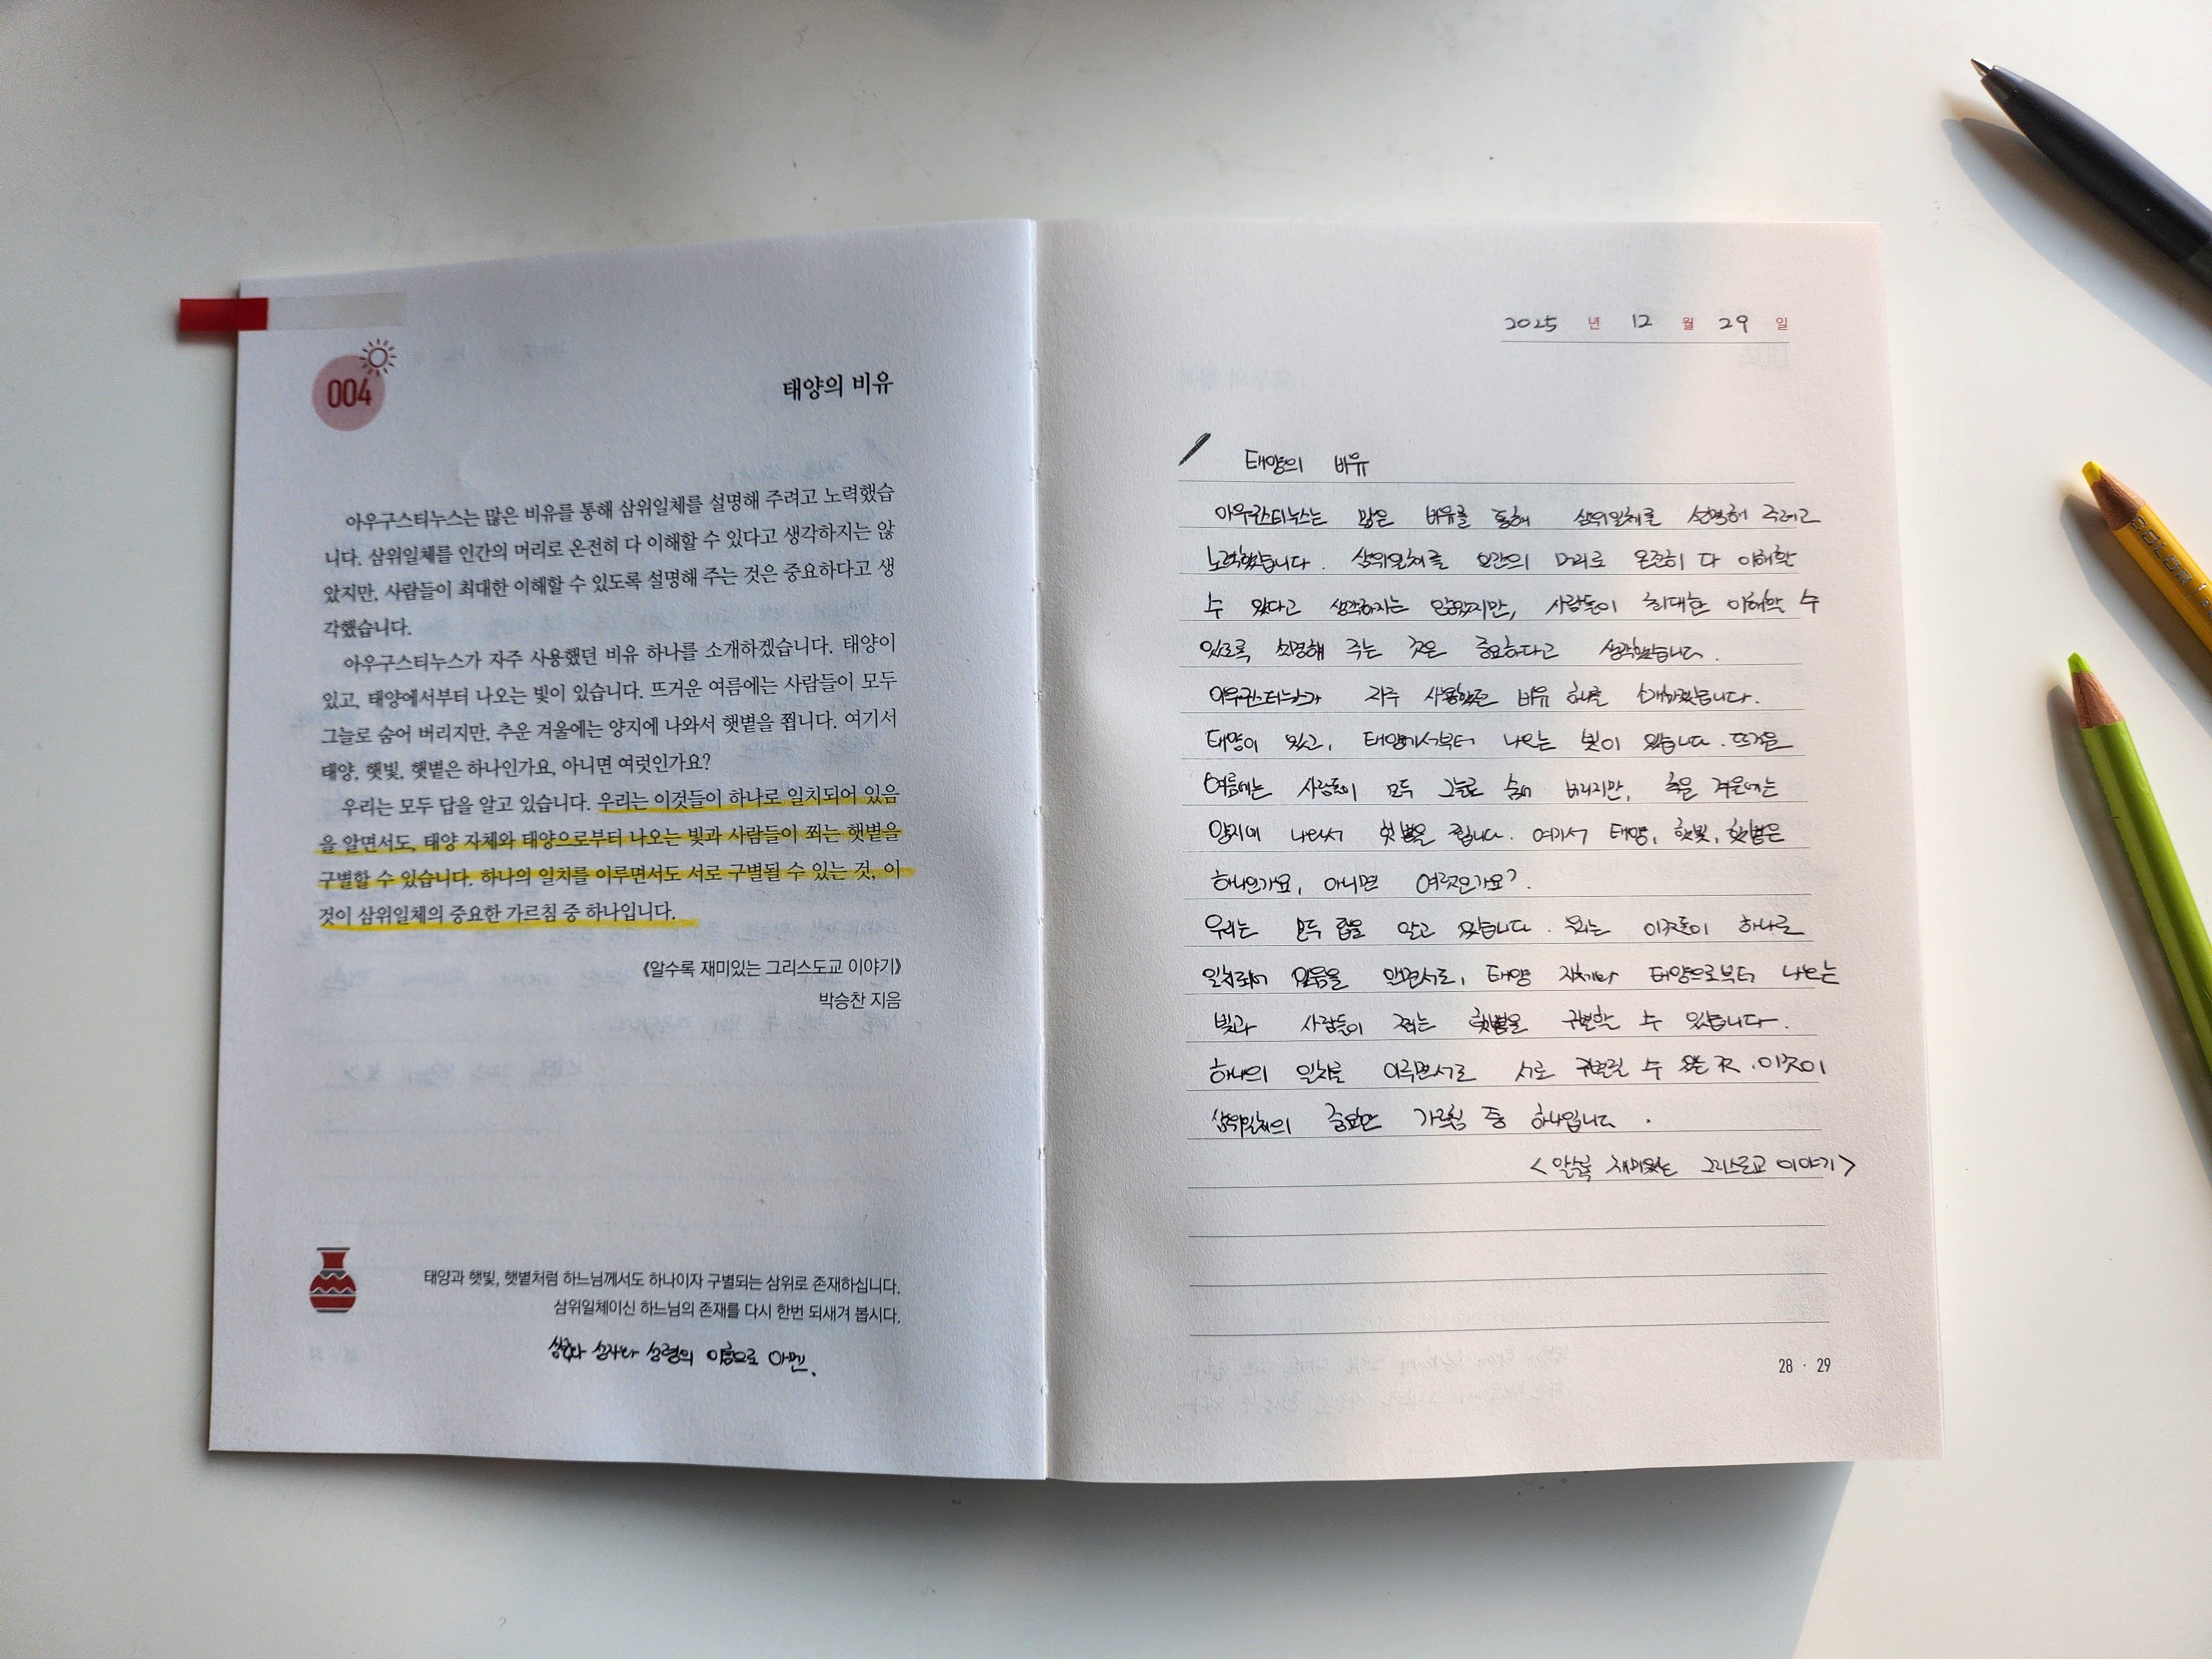 004
태양의 비유
아우구스티누스는 많은 비유를 통해 삼위일체를 설명해 주려고 노력했습
니다. 삼위일체를 인간의 머리로 온전히 다 이해할 수 있다고 생각하지는 않
았지만, 사람들이 최대한 이해할 수 있도록 설명해 주는 것은 중요하다고 생
각했습니다.
아우구스티누스가 자주 사용했던 비유 하나를 소개하겠습니다. 태양이
있고, 태양에서부터 나오는 빛이 있습니다. 뜨거운 여름에는 사람들이 모두
그늘로 숨어 버리지만, 추운 겨울에는 양지에 나와서 햇볕을 쬡니다. 여기서
태양, 햇빛, 햇볕은 하나인가요, 아니면 여럿인가요?
우리는 모두 답을 알고 있습니다. 우리는 이것들이 하나로 일치되어 있음
을 알면서도, 태양 자체와 태양으로부터 나오는 빛과 사람들이 쬐는 햇볕을
구별할 수 있습니다. 하나의 일치를 이루면서도 서로 구별될 수 있는 것, 이
것이 삼위일체의 중요한 가르침 중 하나입니다.
《알수록 재미있는 그리스도교 이야기》
박승찬 지음
태양과 햇빛, 햇볕처럼 하느님께서도 하나이자 구별되는 삼위로 존재하십니다.
삼위일체이신 하느님의 존재를 다시 한번 되새겨 봅시다.
성부와 성자와 성령의 이름으로 아멘.
2025 년 12 월 29 일
태양의 비유
아우구스티누스는 많은 비유를 통해 삼위일체를 설명해 주려고
노력했습니다. 삼위일체를 인간의 머리로 온전히 다 이해할
수 있다고 생각하지는 않았지만, 사람들이 최대한 이해할 수
있도록 설명해 주는 것은 중요하다고 생각했습니다.
아우구스티누스가 자주 사용했던 비유 하나를 소개하겠습니다.
태양이 있고, 태양에서부터 나오는 빛이 있습니다. 뜨거운
여름에는 사람들이 모두 그늘로 숨어 버리지만, 추운 겨울에는
양지에 나와서 햇볕을 쬡니다. 여기서 태양, 햇빛, 햇볕은
하나인가요, 아니면 여럿인가요?
우리는 모두 답을 알고 있습니다. 우리는 이것들이 하나로
일치되어 있음을 알면서도, 태양 자체와 태양으로부터 나오는
빛과 사람들이 쬐는 햇볕을 구별할 수 있습니다.
하나의 일치를 이루면서도 서로 구별될 수 있는 것, 이것이
삼위일체의 중요한 가르침 중 하나입니다.
<알수록 재미있는 그리스도교 이야기>
28 · 29